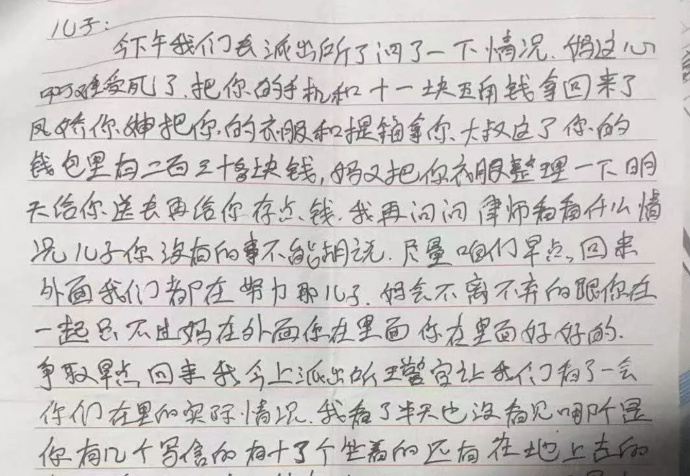 儿子:
今下午我们去派出所了问了一下情况.妈这心
啊难受死了.把你的手机和十一块五角钱拿回来了
风娇你婶把你的衣服和提箱拿你.大叔这了你的
钱包里有二百三十多块钱,妈又把你衣服整理一下明
天给你送去再给你存点钱.我再问问律师和看什么情
况儿子你没有的事不能胡说.尽量咱们早点回来
外面我们都在努力那儿子.妈会不离不弃的跟你在
一起只不过妈在外面你在里面你在里面好好的.
争取早点回来我今上派出所王警官让我们看了一会
你们在里的实际情况.我看了半天也没看见哪个是
你有几个写信的有十了个坐着的还有在地上去的